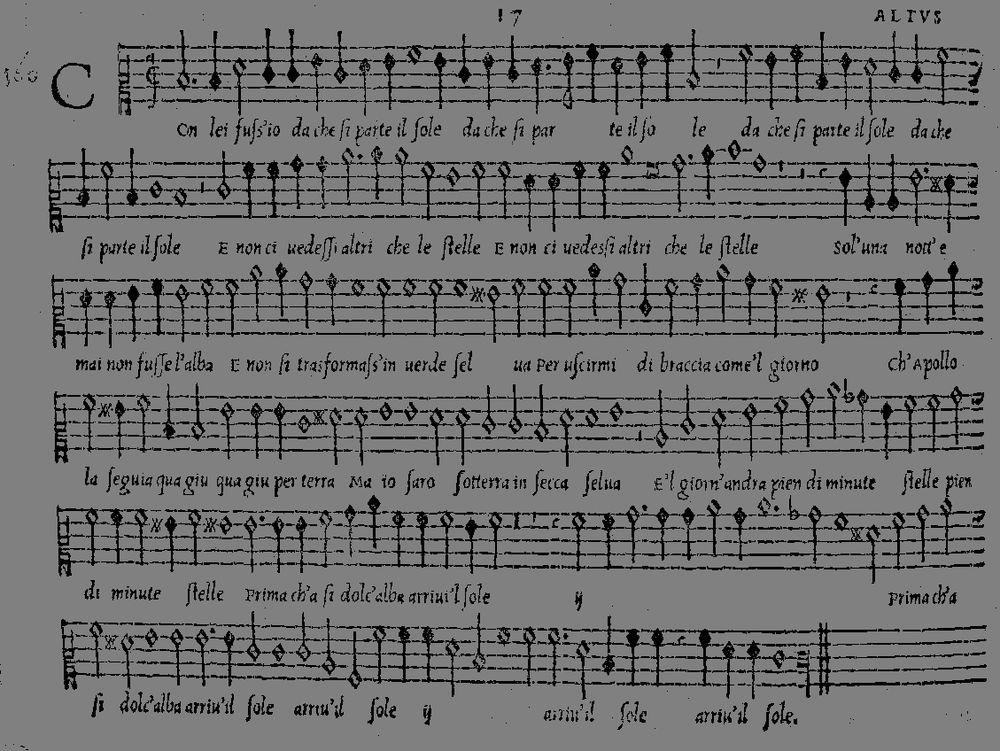 17
ALTVS
160
COn lei fuſs'io da che ſi parte il ſole da che ſi par te il ſo le da che ſi parte il ſole da che
ſi parte il ſole E non ci uedeſſi altri che le ſtelle E non ci uedeſsi altri che le ſtelle Sol'una nott'e
mai non fuſſe l'alba E non ſi trasformaſs'in uerde ſel ua Per uſcirmi di braccia come'l giorno Ch'Apollo
la ſeguia qua giu qua giu per terra Ma io ſaro ſotterra in ſecca ſelua E'l giorn'andra pien di minute ſtelle pien
di minute ſtelle Prima ch'a ſi dolc'alba arriui'l ſole ij Prima ch'a
ſi dolc'alba arriu'il ſole arriu'il ſole ij arriu'il ſole arriu'il ſole.